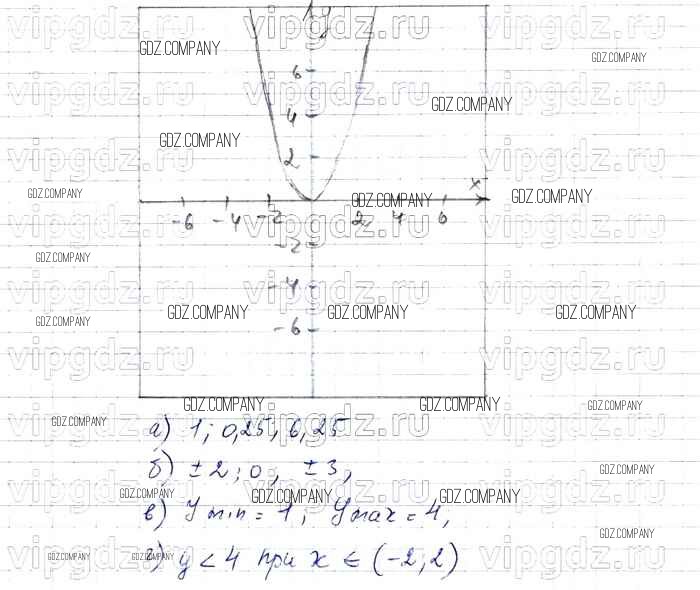 y
6
4
2
x
-6 -4 -2 2 4 6
-2
-4
-6
а) 1; 0,25; 6,25
б) ±2; 0; ±3,
в) y min = 1; y max = 4,
г) y < 4 при x ∈ (-2; 2)
GDZ.COMPANY
vipgdz.ru